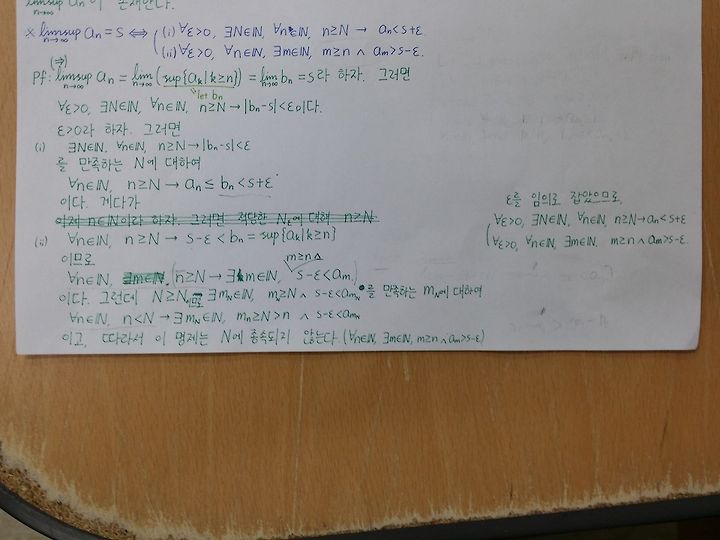 limsup an이 존재한다.
n→∞
※ limsup an = s ⇔ (i) ∀ε>0, ∃N∈ℕ, ∀n∈ℕ, n≥N → an<s+ε.
n→∞
(ii) ∀ε>0, ∀n∈ℕ, ∃m∈ℕ, m≥n ∧ am>s-ε.
(⇒)
Pf: limsup an = lim (sup{ak|k≥n}) = lim bn = s라 하자. 그러면
n→∞ n→∞ n→∞
let bn
∀ε>0, ∃N∈ℕ, ∀n∈ℕ, n≥N→|bn-s|<ε이다.
ε>0라 하자. 그러면
(i) ∃N∈ℕ, ∀n∈ℕ, n≥N→|bn-s|<ε
를 만족하는 N에 대하여
∀n∈ℕ, n≥N → an ≤ bn<s+ε
이다. 게다가
이제 n∈ℕ이라 하자. 그러면 적당한 Nε에 대해 n≥N
(ii) ∀n∈ℕ, n≥N → s-ε<bn = sup{ak|k≥n}
이므로
m≥n ∧
∀n∈ℕ, ∃m∈ℕ, (n≥N → ∃m∈ℕ, s-ε<am)
이다. 그런데 N≥N이므로 ∃mN∈ℕ, mN≥N ∧ s-ε<amN를 만족하는 mN에 대하여
∀n∈ℕ, n<N → ∃mN∈ℕ, mN≥N>n ∧ s-ε<amN
이고, 따라서 이 명제는 N에 종속되지 않는다. (∀n∈ℕ, ∃m∈ℕ, m≥n ∧ am>s-ε)
ε를 임의로 잡았으므로,
∀ε>0, ∃N∈ℕ, ∀n∈ℕ, n≥N→an<s+ε
∀ε>0, ∀n∈ℕ, ∃m∈ℕ, m≥n ∧ am>s-ε.